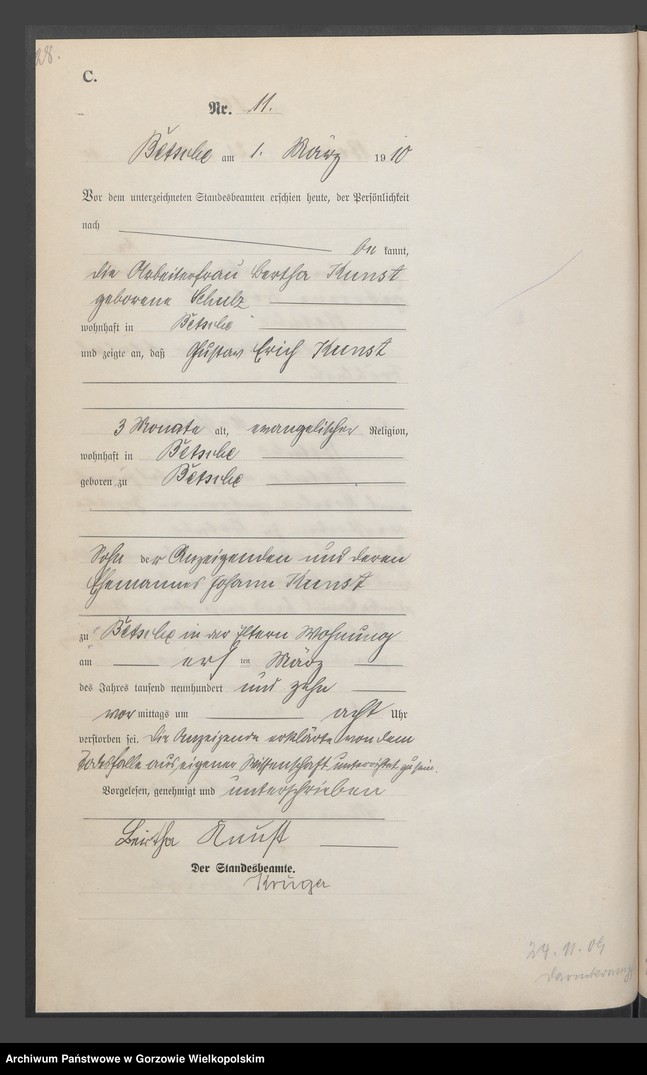 28.
C.
Nr. 11.
Betsche am 1. März 1910
Vor dem unterzeichneten Standesbeamten erschien heute, der Persönlichkeit
nach
be kannt,
die Arbeiterfrau Bertha Kunst
geborene Schulz
wohnhaft in Betsche
und zeigte an, daß Gustav Erich Kunst
3 Monate alt, evangelischer Religion,
wohnhaft in Betsche
geboren zu Betsche
Sohn der Anzeigenden und deren
Ehemannes Johann Kunst
zu Betsche in der Eltern Wohnung
am ersten März
des Jahres tausend neunhundert und zehn
vormittags um acht Uhr
verstorben sei. Die Anzeigende erklärte von dem
Todesfalle aus eigener Wissenschaft unterrichtet zu sein.
Vorgelesen, genehmigt und unterschrieben
Bertha Kunst
Der Standesbeamte.
Krüger
24. 11. 09
Archiwum Państwowe w Gorzowie Wielkopolskim